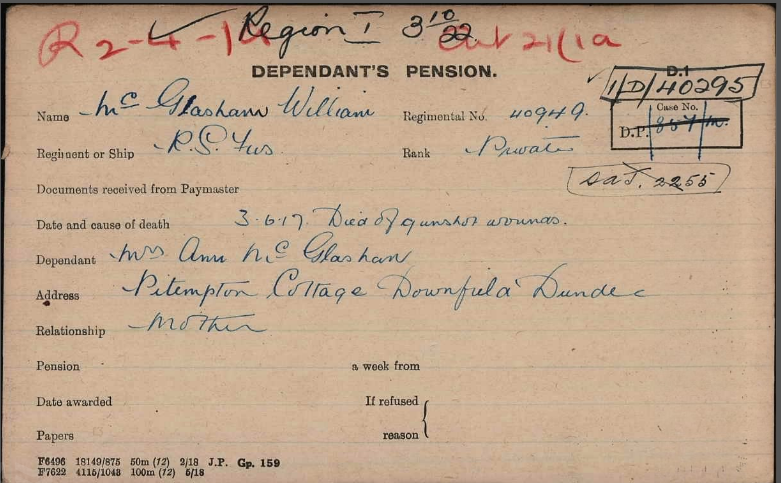 R 2-4-1 Region I 3 10/22 21/1a
DEPENDANT'S PENSION.
D.1
1/D/40295
Name Mc Glashan William Regimental No. 40949.
Case No.
D.P. 857 M.
Regiment or Ship R.S. Fus Rank Private
SAT. 2255
Documents received from Paymaster
Date and cause of death 3.6.17. Died of gunshot wounds.
Dependant Mrs Ann Mc Glashan
Address Pitempton Cottage Downfield Dundee
Relationship Mother
Pension a week from
Date awarded If refused
Papers reason
F6496 18149/875 50m (12) 2/18 J.P. Gp. 159
F7622 4115/1048 100m (12) 5/18